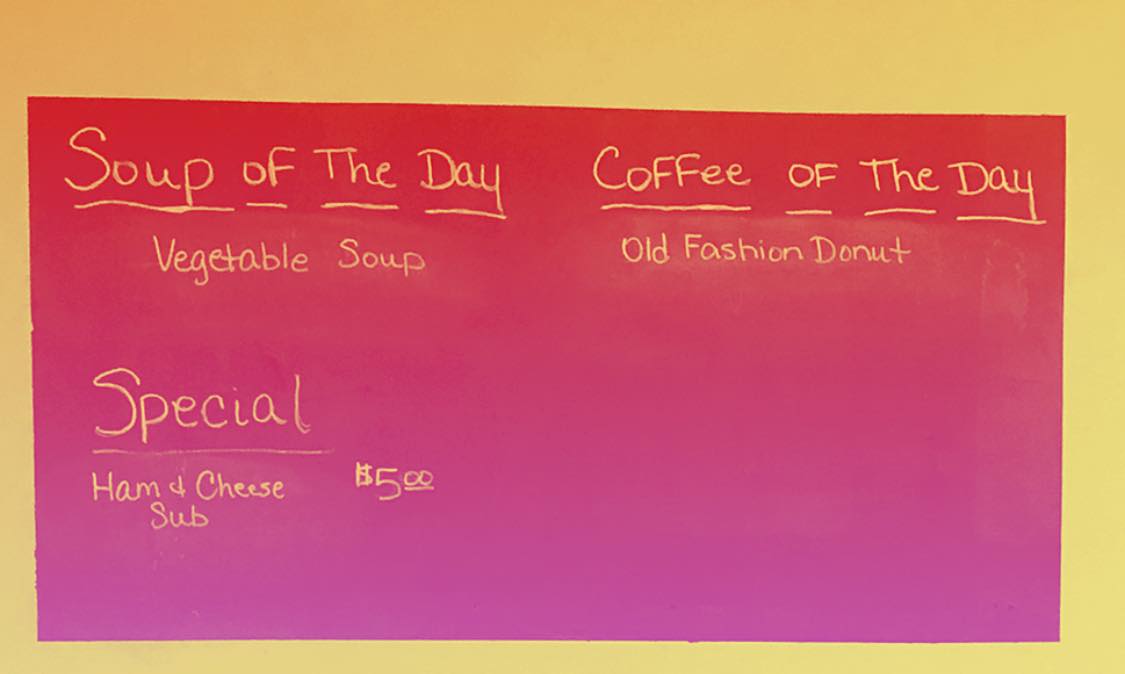 Soup of The Day
Vegetable Soup
Special
Ham & Cheese
Sub
$5.00
Coffee of The Day
Old Fashion Donut